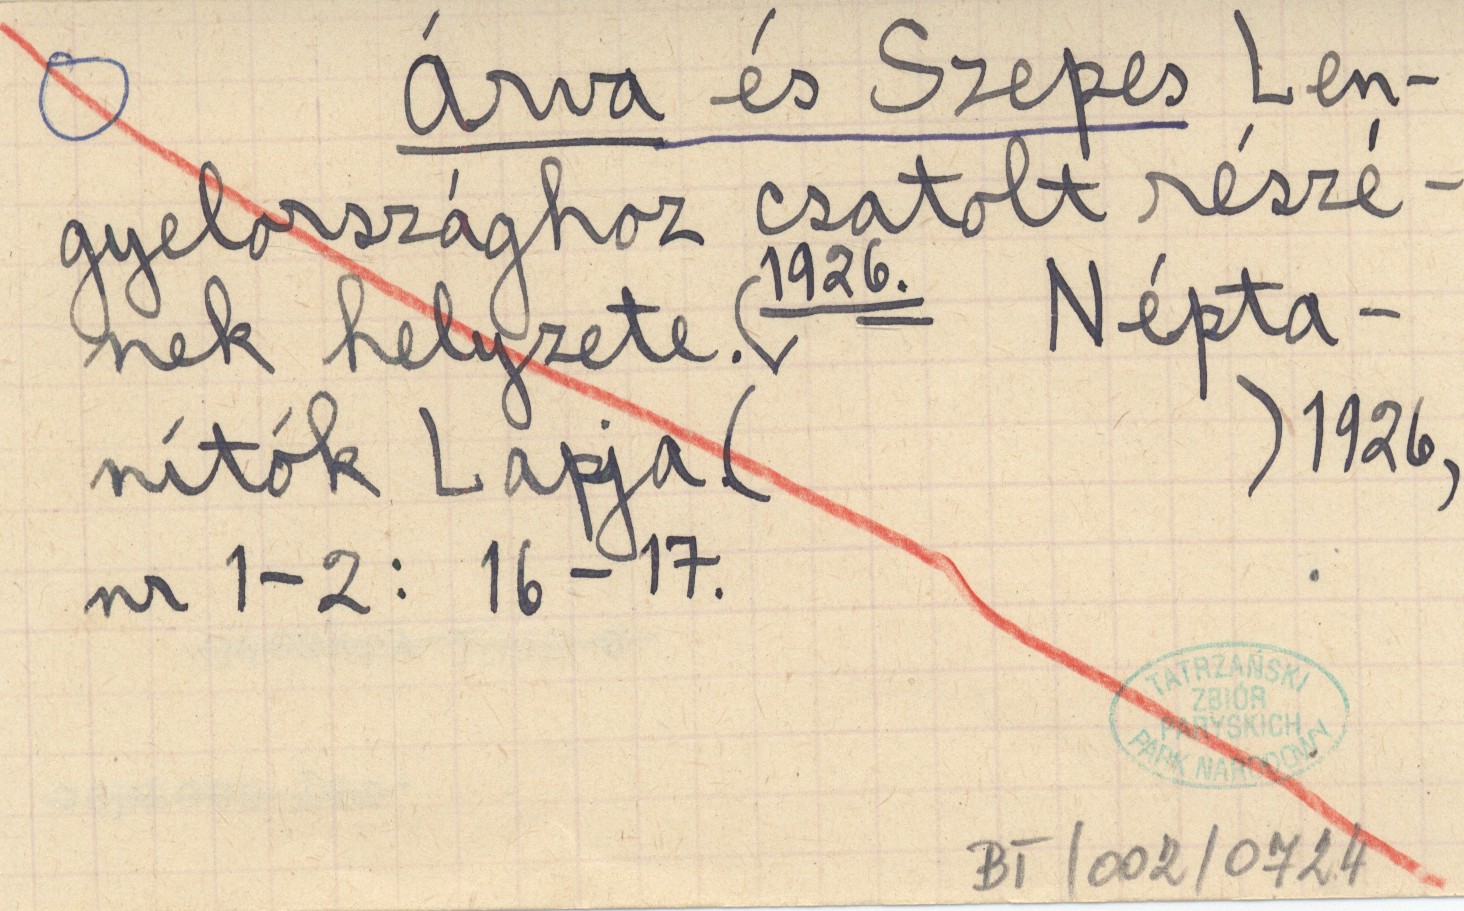 Árva és Szepes Len-
gyelországhoz csatolt részé-
nek helyzete. (1926. Népta-
nítók Lapja. ( ) 1926,
nr 1-2: 16-17.
TATRZAŃSKI
ZBIÓR
PARYSKICH
PARK NARODOWY
BT/002/0724